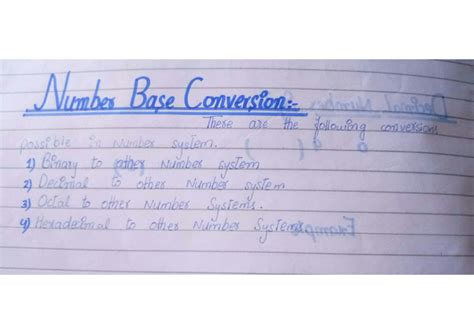 Number Base Conversion:-
There are the following conversions
possible in number system.
1) Binary to other Number system
2) Decimal to other Number system
3) Octal to other Number Systems.
4) Hexadecimal to other Number Systems